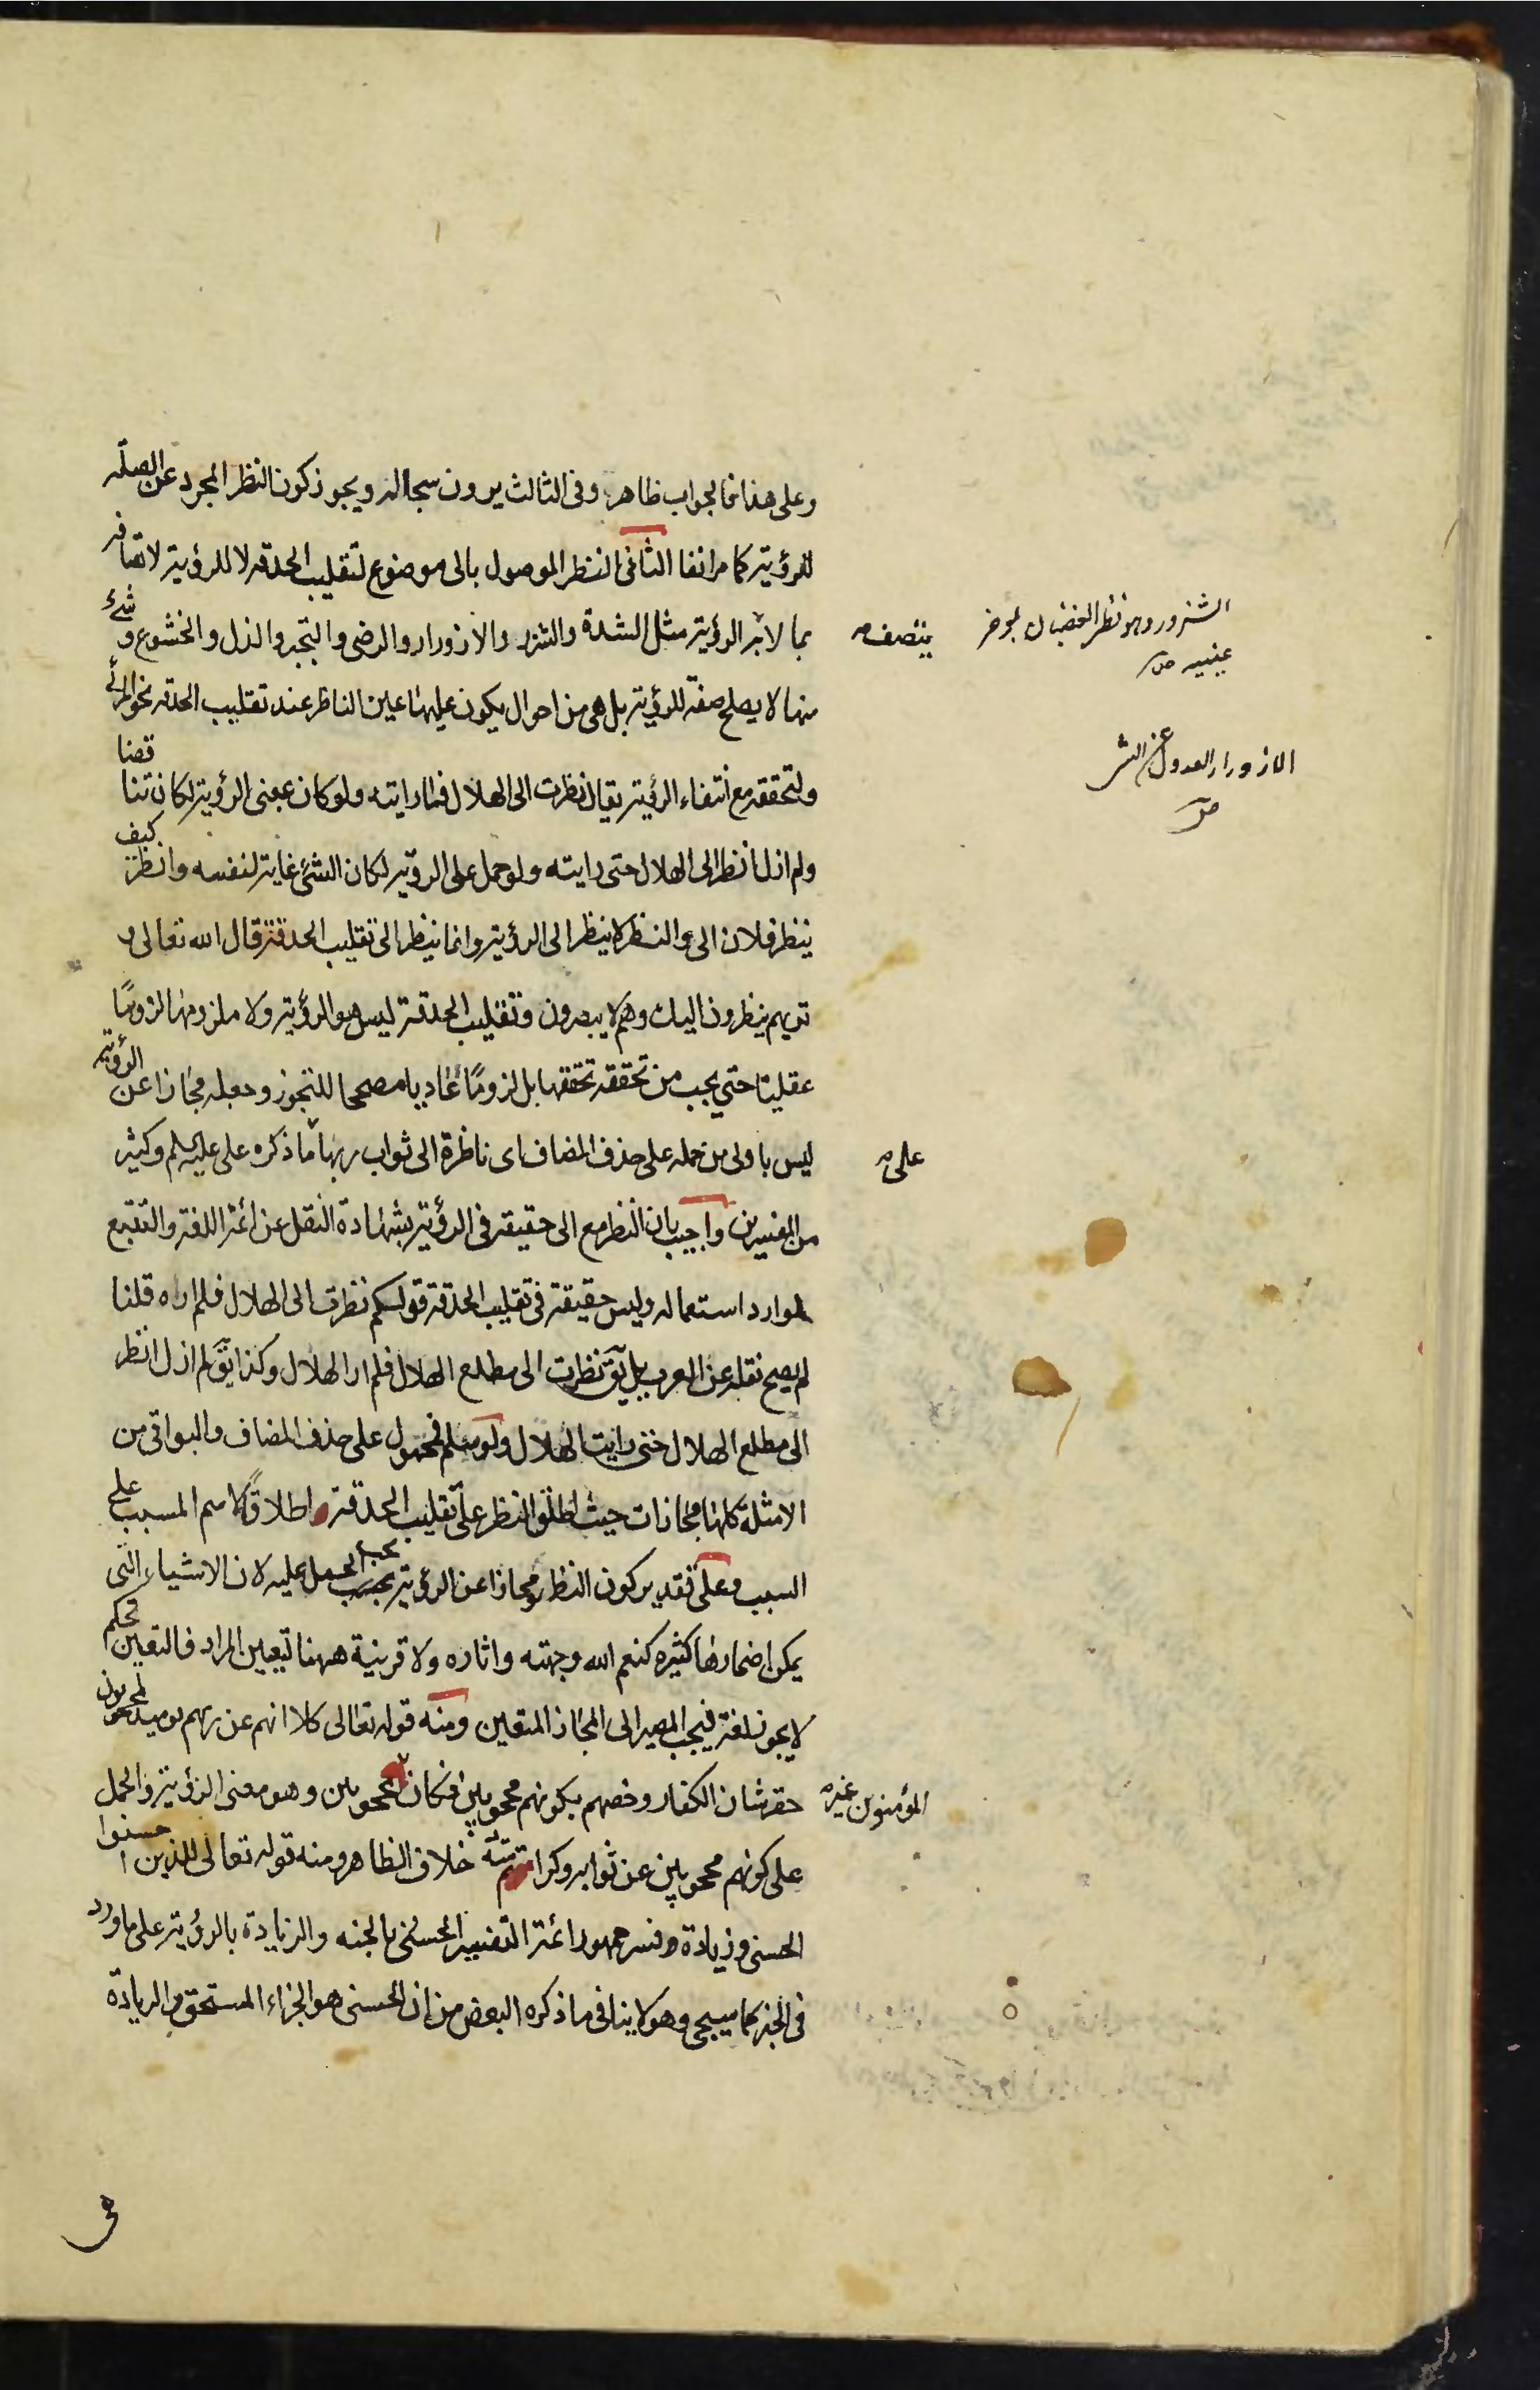 وعلى هذا فالجواب ظاهر وفى الثالث يرون سجاله ويجوز كون النظر المجرد عن الصلة
للرؤية كما مر انفا الثانى النظر الموصول بالى موضوع لتقليب الحدقة لا للرؤية لاتصافه
بما لا الرؤية مثل الشدة والشزر والازورار والرضى والتجبر والذل والخشوع وشئ
منها لا يصلح صفة للرؤية بل هى من احوال يكون عليها عين الناظر عند تقليب الحدقة نحو المرئى
ولتحققه مع انتفاء الرؤية يقال نظرت الى الهلال فما رايته ولو كان بمعنى الرؤية لكان تناقضا
ولم ازل انظر الى الهلال حتى رايته ولو حمل على الرؤية لكان الشئ غاية لنفسه وانظر كيف
ينظر فلان الى والنظر لا ينظر الى الرؤية وانما ينظر الى تقليب الحدقة قال الله تعالى و
تريهم ينظرون اليك وهم لا يبصرون وتقليب الحدقة ليس هو الرؤية ولا ملزومها لزومًا
عقليا حتى يجب من تحققه تحققها بل لزومًا عاديا مصححا للتجوز وجعله مجازا عن الرؤية
ليس باولى من حمله على حذف المضاف اى ناظرة الى ثواب ربها ما ذكره على عليه السلم وكثير
من المفسرين واجيب بان النظر مع الى حقيقة فى الرؤية بشهادة النقل عن ائمة اللغة والتتبع
لموارد استعماله وليس حقيقة فى تقليب الحدقة قولكم نظرت الى الهلال فلم اراه قلنا
لم يصح نقله عن العرب بل يق نظرت الى مطلع الهلال فلم ار الهلال وكذا يق لم ازل انظر
الى مطلع الهلال حتى رايت الهلال ولو سلم فمحمول على حذف المضاف والبواقى من
الامثلة كلها مجازات حيث اطلق النظر على تقليب الحدقة اطلاقًا لاسم المسبب على
السبب وعلى تقدير كون النظر مجازا عن الرؤية يجب الحمل عليه لان الاشياء التى
يمكن اضمارها كثيره كنعم الله وجهته واثاره ولا قرينة ههنا تعيين المراد فالتعيين تحكم
لا يجوز لغة فيجب المصير الى المجاز المتعين ومنه قوله تعالى كلا انهم عن ربهم يوميذ لمحجوبون
حقر شان الكفار وخصهم بكونهم محجوبين فكان محجوبين وهو معنى الرؤية والحمل
على كونهم محجوبين عن ثوابه وكرامته خلاف الظاهر ومنه قوله تعالى للذين احسنوا
الحسنى وزيادة وفسر جمهور ائمة التفسير الحسنى بالجنه والزيادة بالرؤية على ما ورد
فى الخبر كما سيجى وهو لا ينافى ما ذكره البعض من ان الحسنى هو الجزاء المستحق والزيادة
فى
يتصف
الشزور وهو نظر الغضبان بموخر
عينيه ص
الازورار العدول عن الشر
ص
على
المؤمنون غير